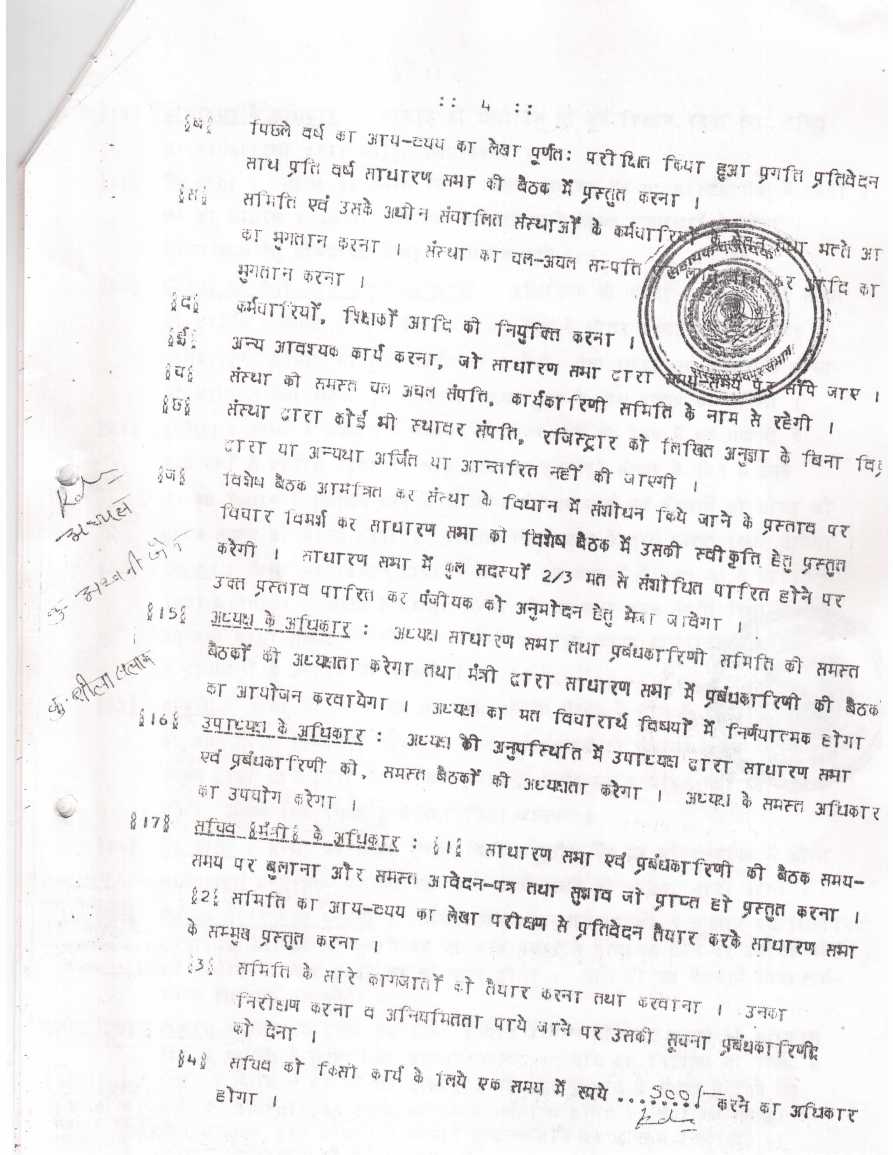 :: 4 ::
§ब§ पिछले वर्ष का आय-व्यय का लेखा पूर्णतः परीक्षित किया हुआ प्रगति प्रतिवेदन
साथ प्रति वर्ष साधारण सभा की बैठक में प्रस्तुत करना ।
§स§ समिति एवं उसके अधीन संचालित संस्थाओं के कर्मचारियों के वेतन तथा भत्ते आ
का भुगतान करना । संस्था का चल-अचल सम्पति कर आदि का
भुगतान करना ।
§द§ कर्मचारियों, शिक्षकों आदि की नियुक्ति करना ।
§ई§ अन्य आवश्यक कार्य करना, जो साधारण सभा द्वारा समय-समय पर सौंपे जाए ।
§च§ संस्था की समस्त चल अचल संपति, कार्यकारिणी समिति के नाम से रहेगी ।
§छ§ संस्था द्वारा कोई भी स्थावर संपति, रजिस्ट्रार की लिखित अनुज्ञा के बिना
द्वारा या अन्यथा अर्जित या आन्तरित नहीं की जाएगी ।
§ज§ विशेष बैठक आमंत्रित कर संस्था के विधान में संशोधन किये जाने के प्रस्ताव पर
विचार विमर्श कर साधारण सभा की विशेष बैठक में उसकी स्वीकृति हेतु प्रस्तुत
करेगी । साधारण सभा में कुल सदस्यों 2/3 मत से संशोधित पारित होने पर
उक्त प्रस्ताव पारित कर पंजीयक को अनुमोदन हेतु भेजा जावेगा ।
§15§ अध्यक्ष के अधिकार : अध्यक्ष साधारण सभा तथा प्रबंधकारिणी समिति की समस्त
बैठकों की अध्यक्षता करेगा तथा मंत्री द्वारा साधारण सभा में प्रबंधकारिणी की बैठक
का आयोजन करवायेगा । अध्यक्ष का मत विचारार्थ विषयों में निर्णयात्मक होगा
§16§ उपाध्यक्ष के अधिकार : अध्यक्ष की अनुपस्थिति में उपाध्यक्ष द्वारा साधारण सभा
एवं प्रबंधकारिणी की, समस्त बैठकों की अध्यक्षता करेगा । अध्यक्ष के समस्त अधिकार
का उपयोग करेगा ।
§17§ सचिव §मंत्री§ के अधिकार : §1§ साधारण सभा एवं प्रबंधकारिणी की बैठक समय-
समय पर बुलाना और समस्त आवेदन-पत्र तथा सुझाव जो प्राप्त हो प्रस्तुत करना ।
§2§ समिति का आय-व्यय का लेखा परीक्षण से प्रतिवेदन तैयार करके साधारण सभा
के सम्मुख प्रस्तुत करना ।
§3§ समिति के सारे कागजातों को तैयार करना तथा करवाना । उनका
निरीक्षण करना व अनियमितता पाये जाने पर उसकी सूचना प्रबंधकारिणी
को देना ।
§4§ सचिव को किसी कार्य के लिये एक समय में रूपये ...500/-... करने का अधिकार
होगा ।
अध्यक्ष